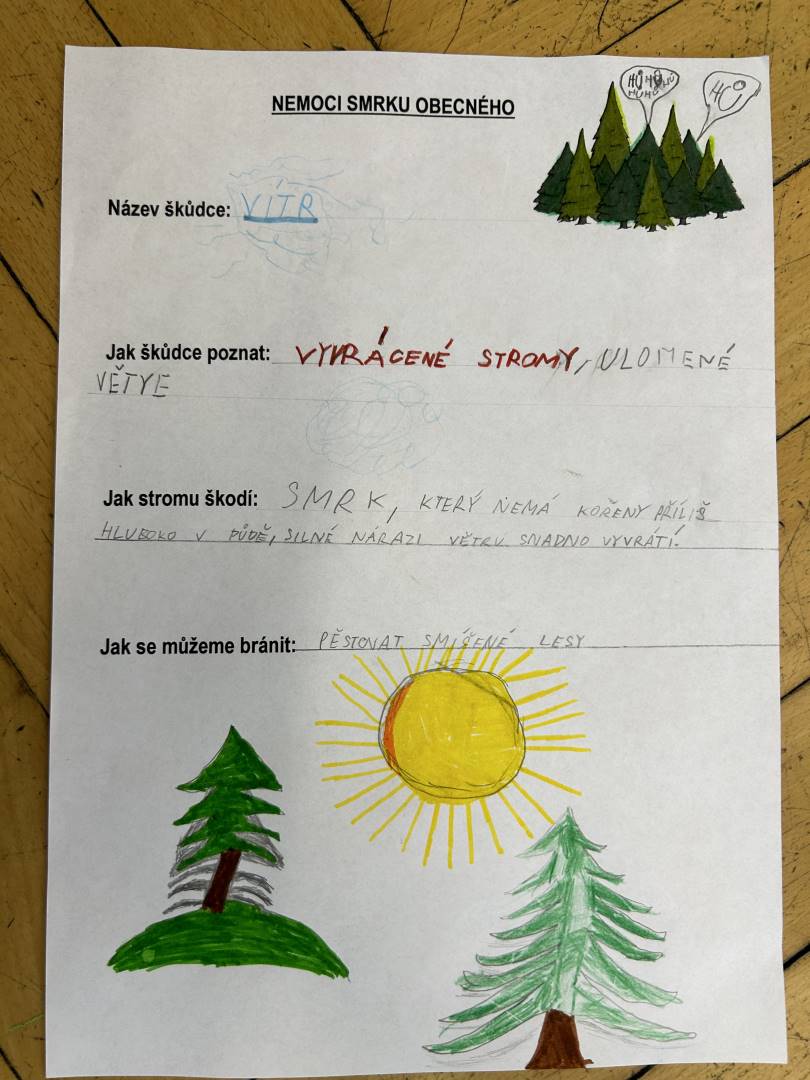 NEMOCI SMRKU OBECNÉHO
HŮ HŮ HŮ
HŮ HŮ
HŮ
Název škůdce: VÍTR
Jak škůdce poznat: VYVRÁCENÉ STROMY, ULOMENÉ
VĚTVE
Jak stromu škodí: SMRK, KTERÝ NEMÁ KOŘENY PŘÍLIŠ
HLUBOKO V PŮDĚ, SILNÉ NÁRAZI VĚTRU SNADNO VYVRÁTÍ.
Jak se můžeme bránit: PĚSTOVAT SMÍŠENÉ LESY